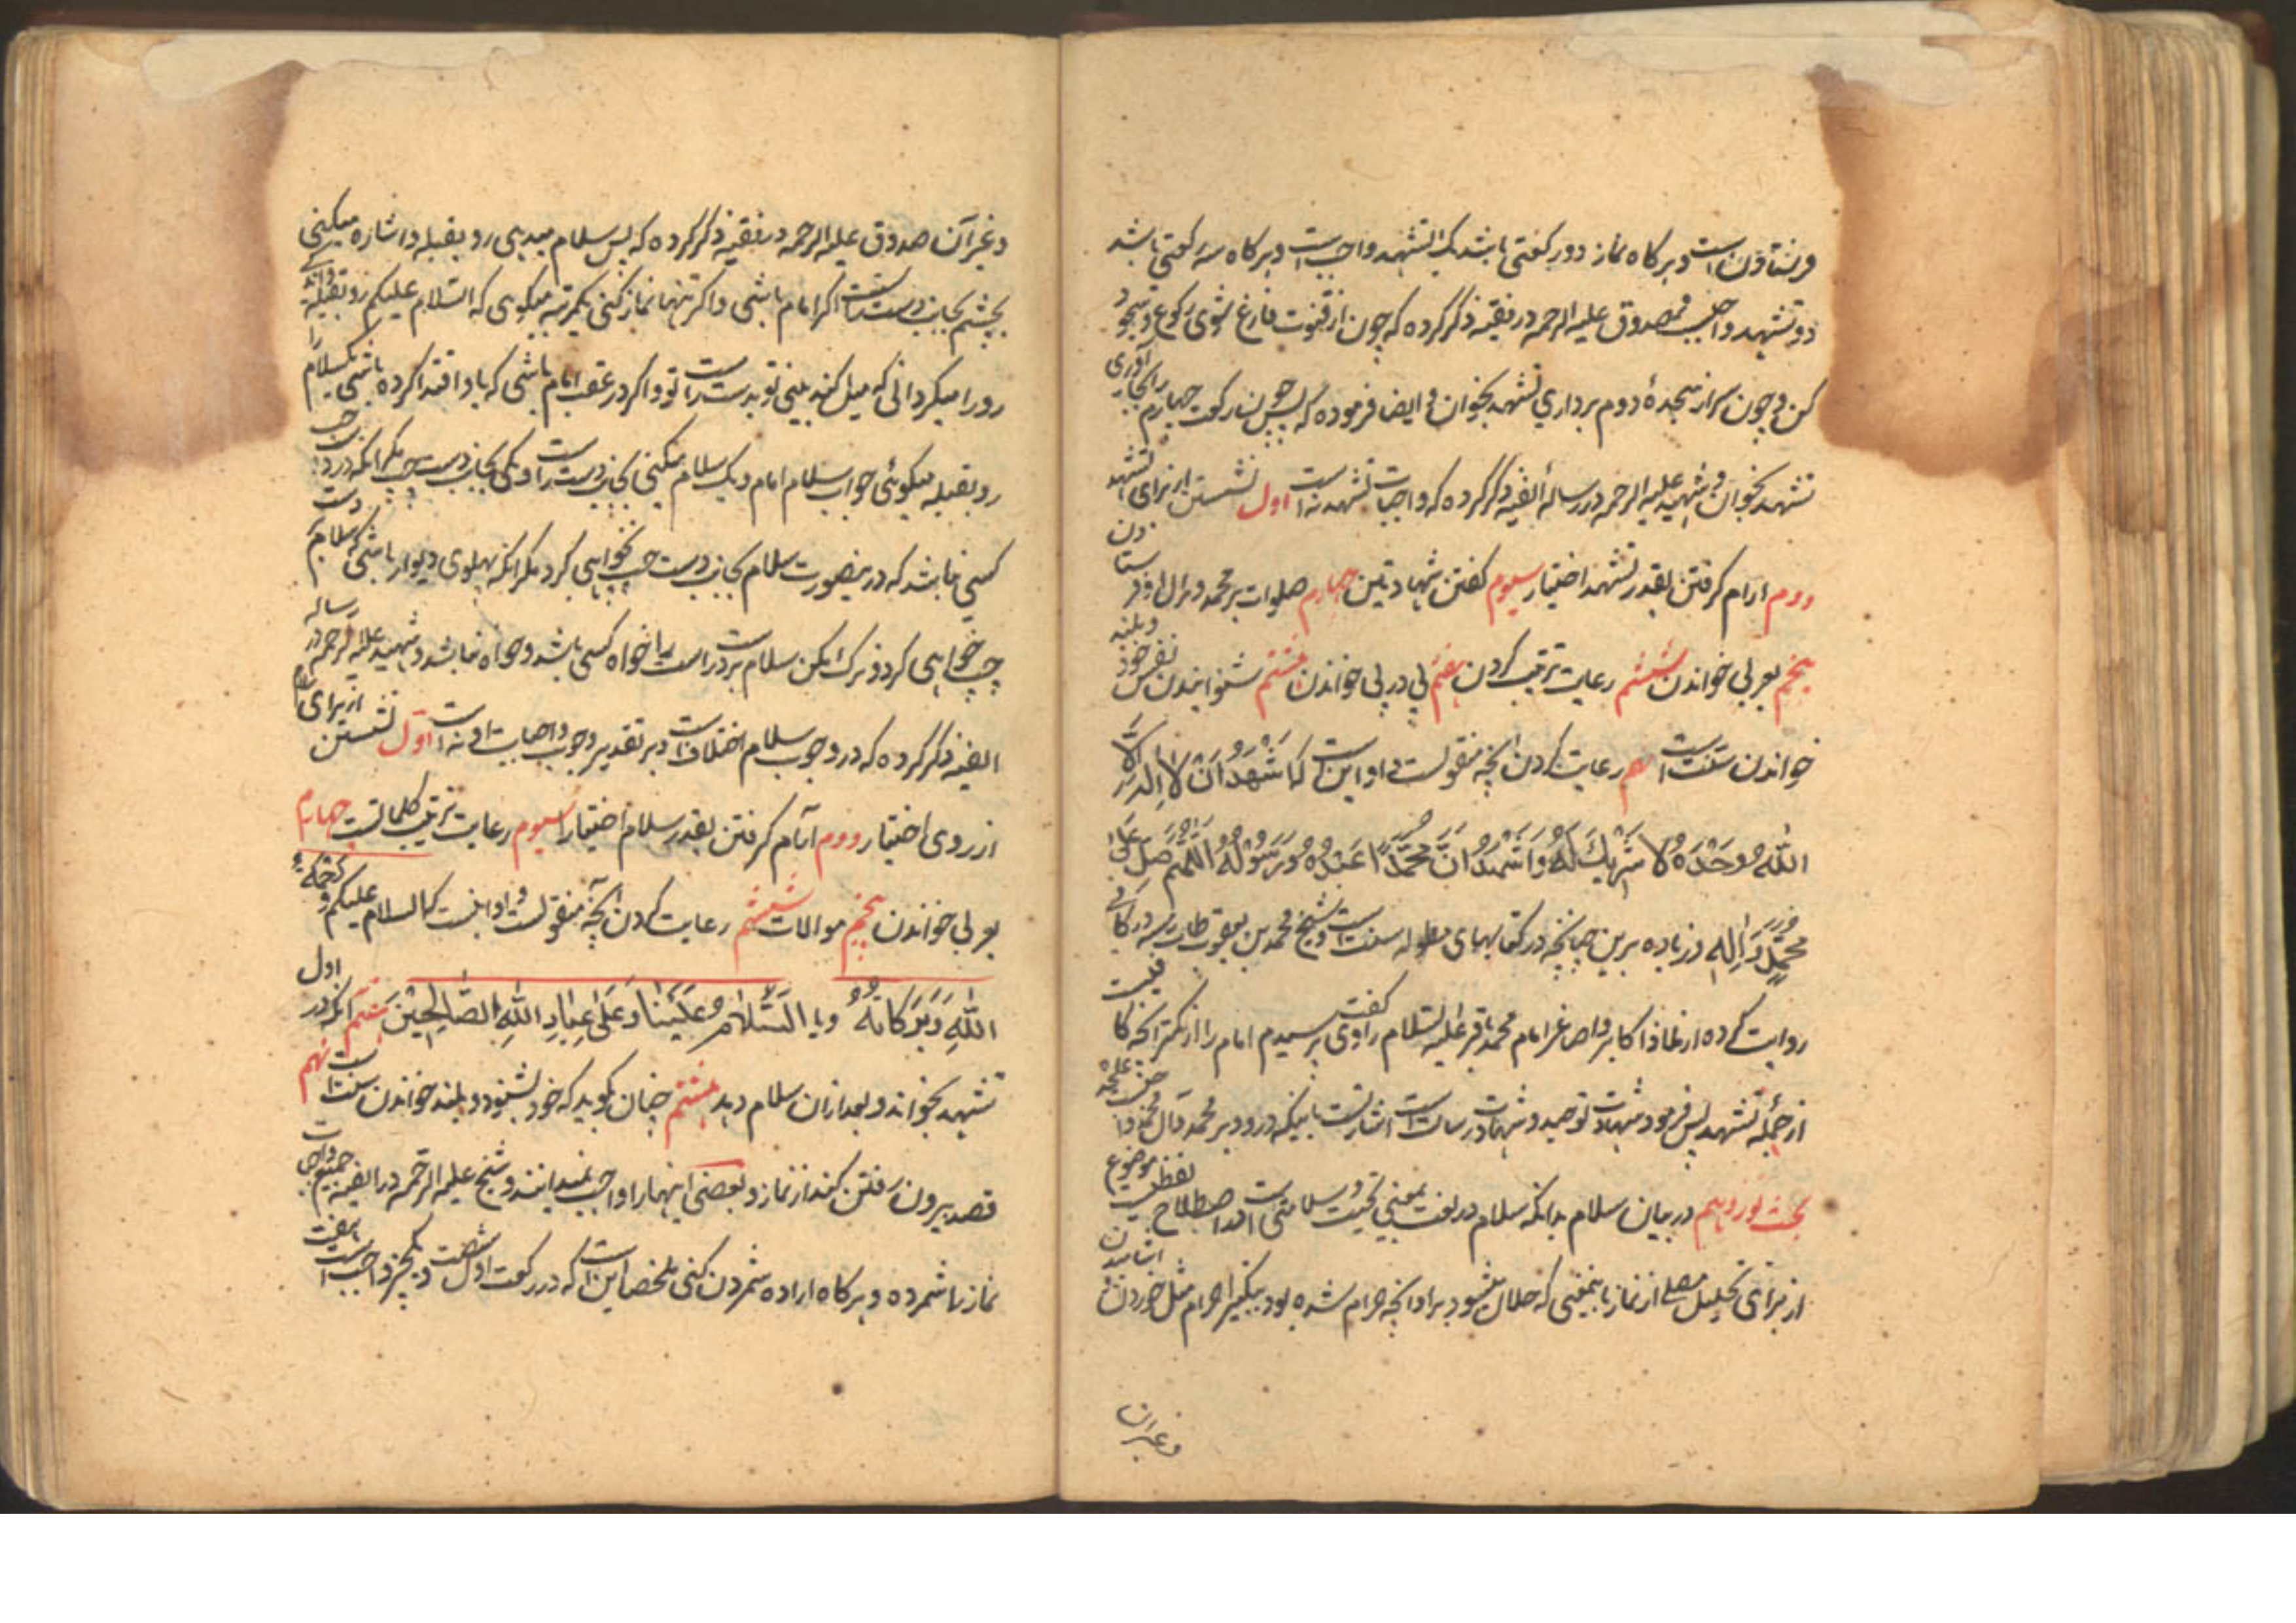 فرستادن است و هر کاه نماز دور کعتی باشد یک تشهد واجب است و هر کاه سه رکعتی باشد
دو تشهد واجب صدوق علیه الرحمه در فقیه ذکر کرده که چون از قنوت فارغ شوی رکوع و سجود
کن و چون سر از سجدهٔ دوم برداری تشهد بخوان و ایضا فرموده که پس چون رکعت چهارم را بجا آوری
تشهد بخوان و شهید علیه الرحمه در رسالهٔ الفیه ذکر کرده که واجبات تشهد نه است اول نشستن از برای تشهد
دوم ارام کرفتن بقدر تشهد اختیار سیوم کفتن شهادتین چهارم صلوات بر محمد و آل او فرستادن
پنجم بعربی خواندن ششم رعایت ترتیب کردن هفتم پی در پی خواندن هشتم شنوانیدن نفس خود و بلند
خواندن سنت است نهم رعایت کردن آنچه منقولست و او این است که اَشْهَدُ اَنْ لا اِلهَ اِلَّا
اللهُ وَحْدَهُ لا شَرِیكَ لَهُ وَاَشْهَدُ اَنَّ مُحَمَّدًا عَبْدُهُ وَرَسُوْلُهُ اَللّٰهُمَّ صَلِّ عَلٰی
مُحَمَّدٍ وَاٰلِهِ و زیاده برین چنانچه در کتابهای مطوله سنت است و شیخ محمد بن یعقوب طاب ثراه در کافی
روایت کرده از امام محمد باقر علیه السلام راوی کفت پرسیدم امام را از کمتر آنچه کافیست
از جمله تشهد پس فرمود شهادت توحید و شهادت رسالت است
بحث نوزدهم در بیان سلام بدانکه سلام در لغت بمعنی تحیت و سلامتی است و در اصطلاح لفظیست موضوع
از برای تحلیل مصلی از نماز باینمعنی که حلال میشود بر او آنچه حرام شده بود بتکبیر احرام مثل خوردن و اشامیدن
و غیر آن
و غیر آن صدوق علیه الرحمه در فقیه ذکر کرده که پس سلام میدهی رو بقبله و اشاره میکنی
بچشم بجانب دست راست اکر امام باشی و اکر تنها نماز کنی یکمرتبه میکوی که السلام علیکم رو بقبله
رو را میکردانی که میل کند بینی تو بدست راست تو و اکر در عقب امام باشی که باو اقتدا کرده باشی یک سلام را
رو بقبله میکوئی جواب سلام امام و یک سلام میکنی بجانب دست راست و یکی بجانب دست چپ مکر انکه در دست چپ
کسی نباشد که در ینصورت سلام بجانب دست چپ نخواهی کرد مکر انکه پهلوی دیوار باشی که سلام بدست
چپ خواهی کرد و ترک مکن سلام بر دست راست را خواه کسی باشد و خواه نباشد و شهید علیه الرحمه در رساله
الفیه ذکر کرده که در وجوب سلام اختلاف است و بر تقدیر وجوب واجبات او نه است اول نشستن از برای سلام
از روی اختیار دوم آرام کرفتن بقدر سلام اختیارا سیوم رعایت ترتیب کلماتست چهارم
بعربی خواندن پنجم موالات ششم رعایت کردن آنچه منقولست و او اینست که السلام علیکم و رَحْمَةُ
اللّٰهِ وَبَرَکاتُهُ و یا اَلسَّلامُ عَلَیْنا وَعَلٰی عِبادِ اللّٰهِ الصّالِحِیْنَ هفتم آنکه در اول
تشهد بخواند و بعد از ان سلام دهد هشتم چنان بکوید که خود بشنود و بلند خواندن سنت است نهم
قصد بیرون رفتن کند از نماز و بعضی اینها را واجب نمیدانند و شیخ علیه الرحمه در الفیه جمیع واجبات
نماز را شمرده و هر کاه اراده شمردن کنی ملخص این است که در رکعت اول شصت و یکچیز واجب است